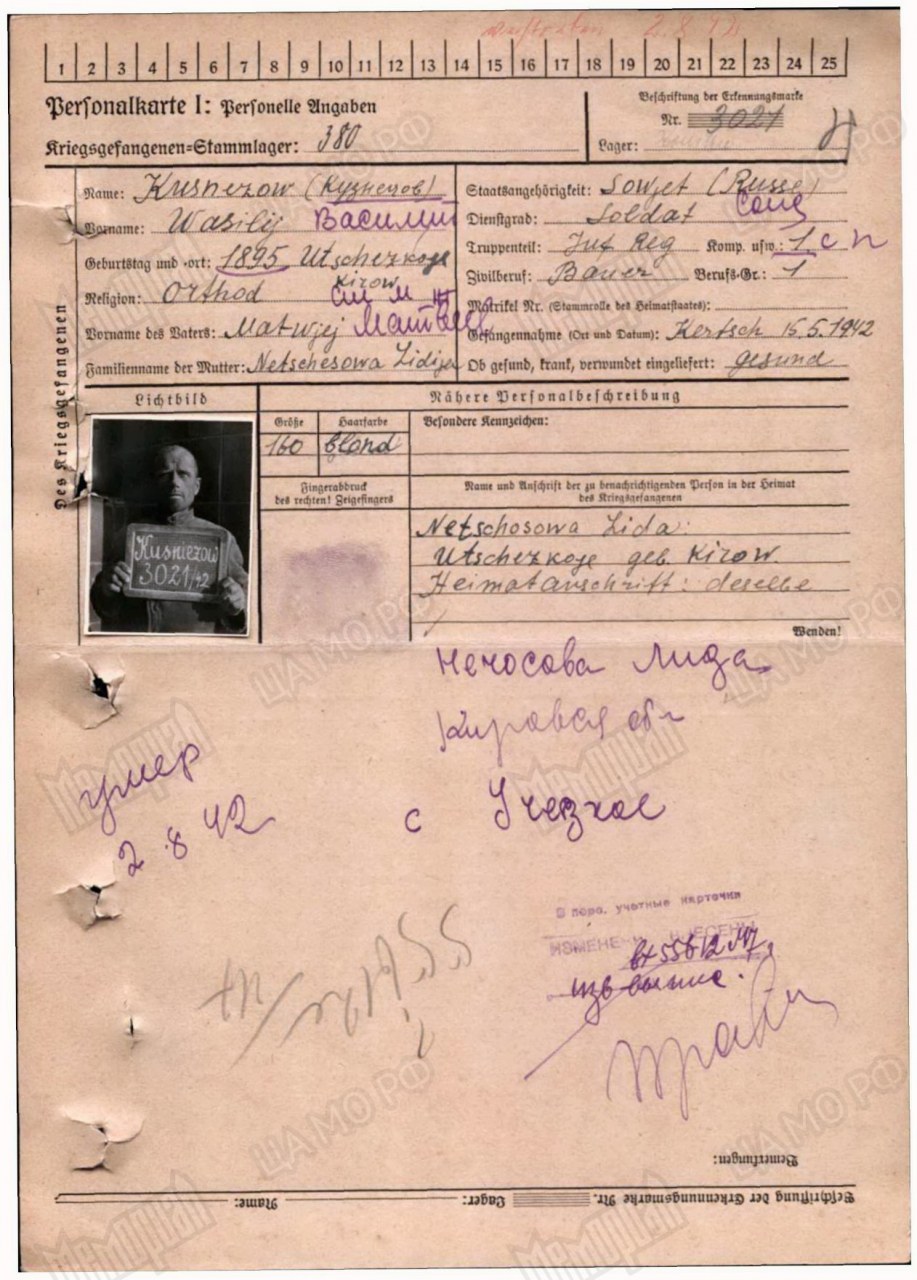 verstorben 2.8.42
1 2 3 4 5 6 7 8 9 10 11 12 13 14 15 16 17 18 19 20 21 22 23 24 25
Personalkarte I: Personelle Angaben
Kriegsgefangenen-Stammlager: 380
Beschriftung der Erkennungsmarke
Nr. 3021
Lager:
Des Kriegsgefangenen
Name: Kusnezow (Кузнечов)
Vorname: Wasilij Василий
Geburtstag und -ort: 1895 Utscherkoje
Kirow
Religion: Orthod
Vorname des Vaters: Matwjej Матвей
Familienname der Mutter: Netschesowa Lidija
Staatsangehörigkeit: Sowjet (Russe)
Dienstgrad: Soldat Солд
Truppenteil: Inf Reg Komp. usw.: 1 с п
Zivilberuf: Bauer Berufs-Gr.: 1
Matrikel Nr. (Stammrolle des Heimatstaates):
Gefangennahme (Ort und Datum): Kertsch 15.5.1942
Ob gesund, krank, verwundet eingeliefert: gesund
Lichtbild
Kusniezow
3021/42
Nähere Personalbeschreibung
Größe Haarfarbe Besondere Kennzeichen:
160 blond
Fingerabdruck
des rechten! Zeigefingers
Name und Anschrift der zu benachrichtigenden Person in der Heimat
des Kriegsgefangenen
Netschosowa Lida:
Utscherkoje geb. Kirow.
Heimatanschrift: deselbe
Wenden!
Нечосова Лида
Кировск обл
с Учезкое
умер
2 8 42
В перс. учетные карточки
ИЗМЕНЕН ВНЕСЕНЫ
Bemerkungen:
Beschriftung der Erkennungsmarke Nr. Lager: Name: